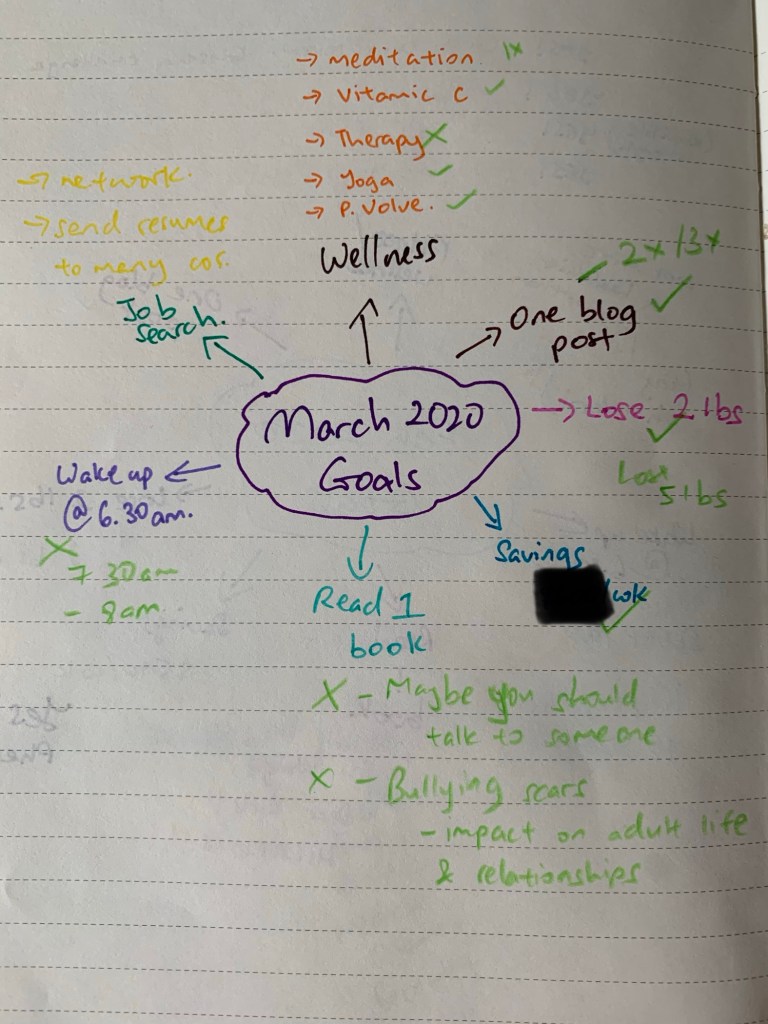 → meditation 1x
→ Vitamic C ✓
→ Therapy X
→ Yoga ✓
→ P. Volve. ✓
Wellness
→ network.
→ send resumes
to many cos.
Job
search.
2x / 3x
One blog ✓
post
March 2020
Goals
→ Lose 2 lbs
✓
Lost
5 lbs
Wake up
@ 6.30 am.
X
7 30am
- 8am
Savings
/wk
✓
Read 1
book
X - Maybe you should
talk to someone
X - Bullying scars
- impact on adult life
& relationships